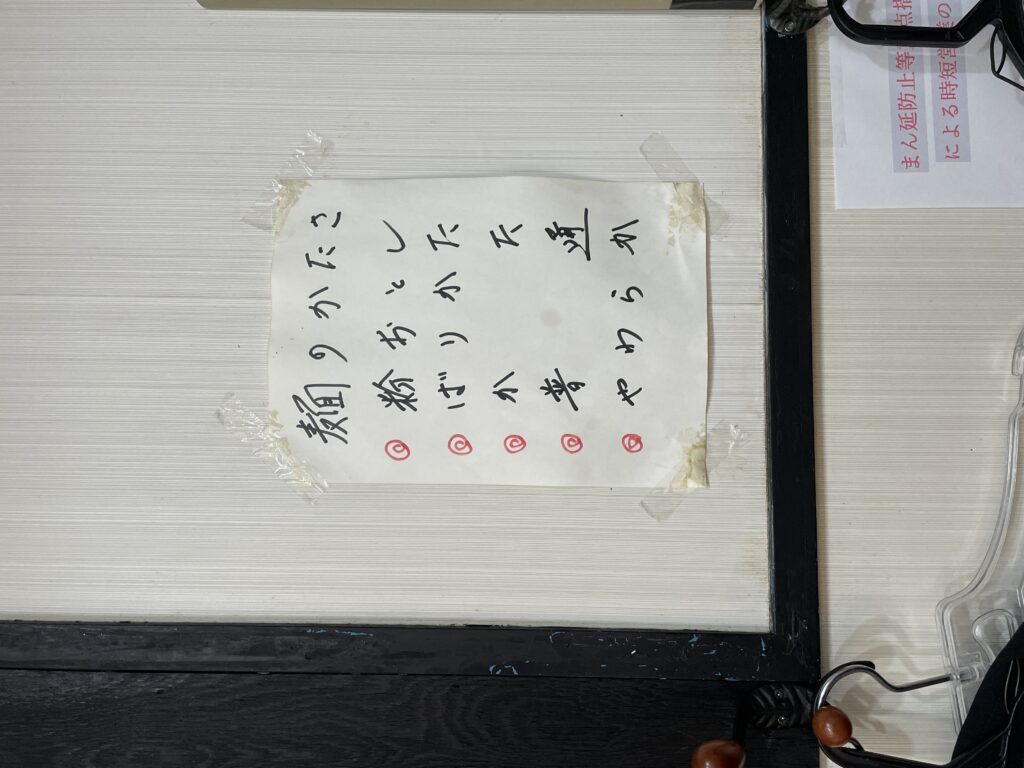 麺のかたさ
◎ 粉おとし
◎ ばりかた
◎ かた
◎ 普通
◎ やわらか
まん延防止等
による時短営